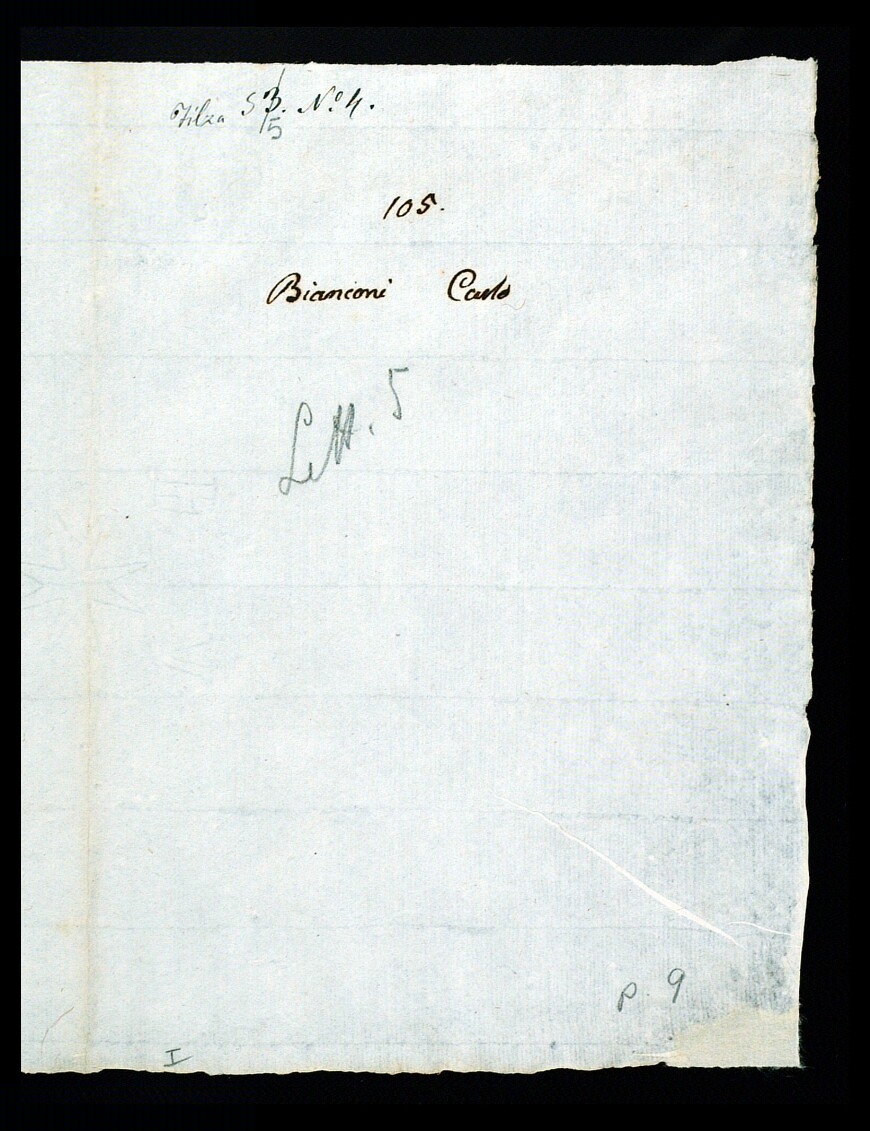 Filza 53. Nº 4.
5
105.
Bianconi Carlo
Lett. 5
p. 9
I